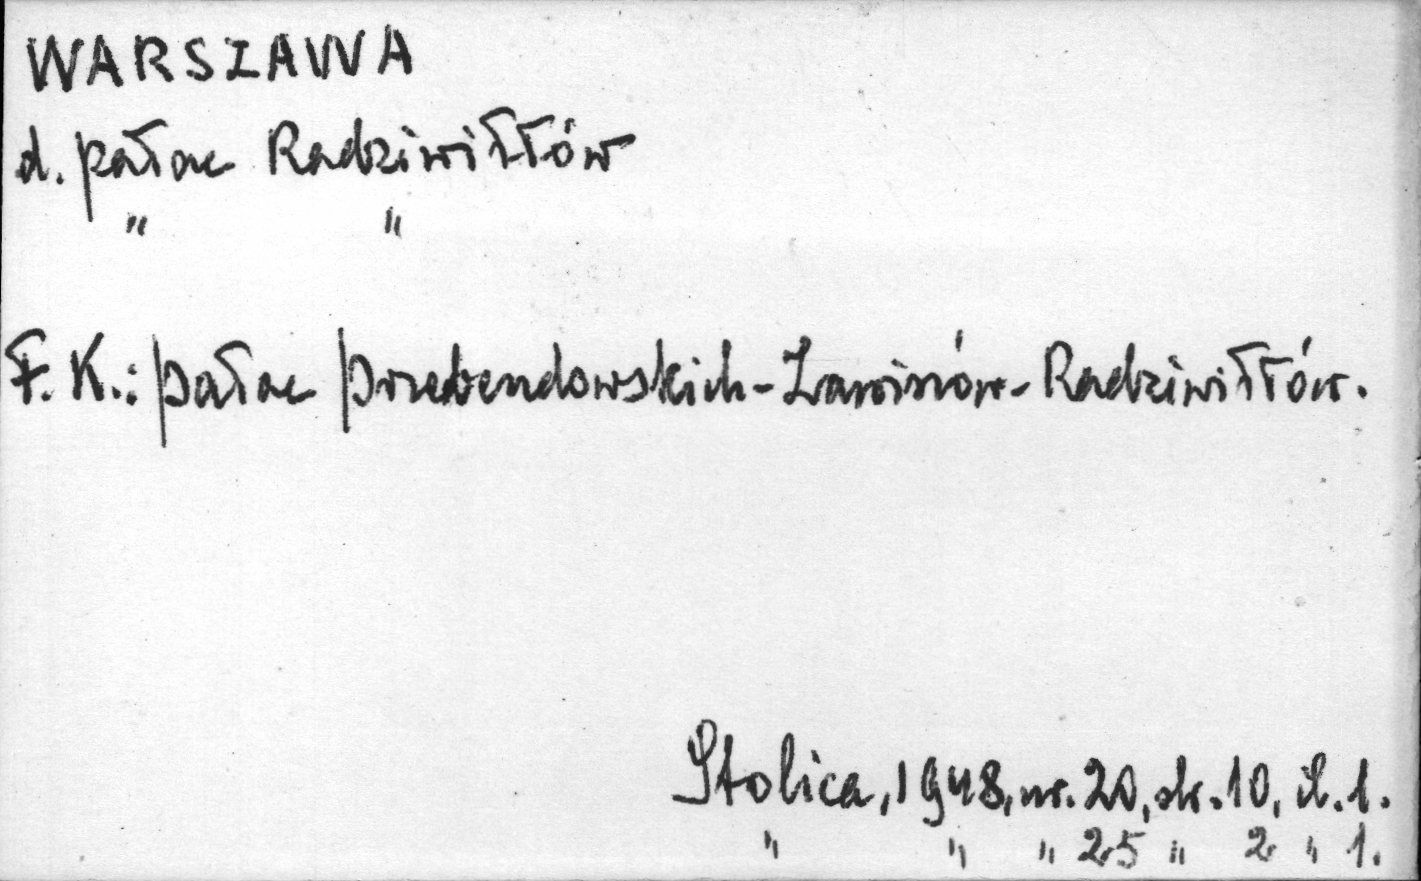 WARSZAWA
d. pałac Radziwiłłów
" "
F. K.: pałac Przebendowskich-Zawiszów-Radziwiłłów.
Stolica, 1948, nr. 20, str. 10, il. 1.
" " " 25 " 2 " 1.